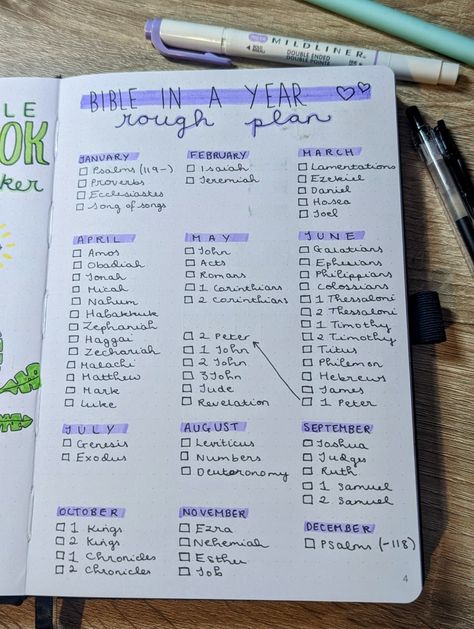 LE
OK
ker
MILDLINER
DOUBLE ENDED
BIBLE IN A YEAR
rough plan
JANUARY
Psalms (119-)
Proverbs
Ecclesiastes
Song of songs
FEBRUARY
Isaiah
Jeremiah
MARCH
Lamentations
Ezekiel
Daniel
Hosea
Joel
APRIL
Amos
Obadiah
Jonah
Micah
Nahum
Habakkuk
Zephaniah
Haggai
Zechariah
Malachi
Matthew
Mark
Luke
MAY
John
Acts
Romans
1 Corinthians
2 Corinthians
2 Peter
1 John
2 John
3 John
Jude
Revelation
JUNE
Galatians
Ephesians
Philippians
Colossians
1 Thessaloni
2 Thessaloni
1 Timothy
2 Timothy
Titus
Philemon
Hebrews
James
1 Peter
JULY
Genesis
Exodus
AUGUST
Leviticus
Numbers
Deuteronomy
SEPTEMBER
Joshua
Judges
Ruth
1 Samuel
2 Samuel
OCTOBER
1 Kings
2 Kings
1 Chronicles
2 Chronicles
NOVEMBER
Ezra
Nehemiah
Esther
Job
DECEMBER
Psalms (-118)
4